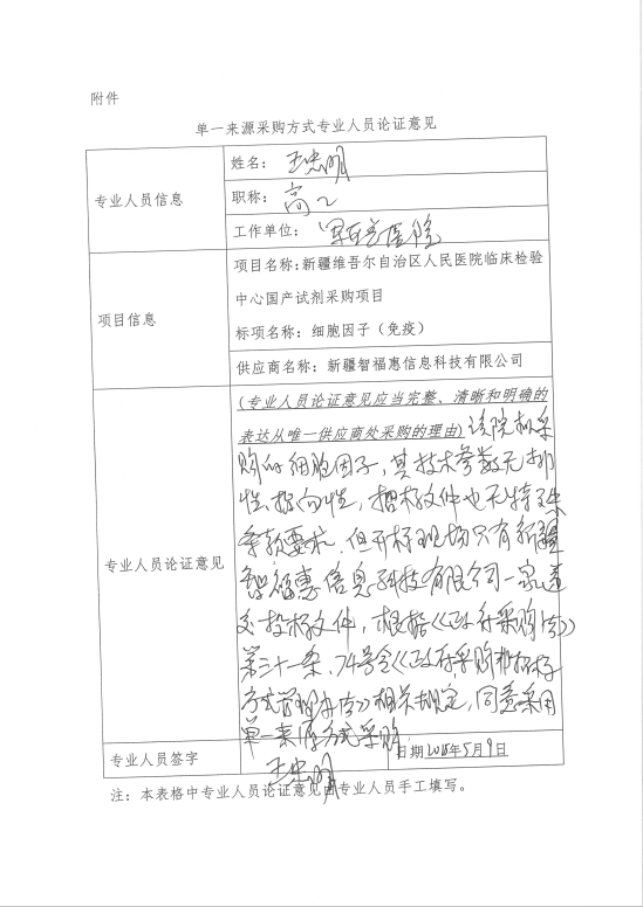 附件
单一来源采购方式专业人员论证意见
专业人员信息
姓名：王忠明
职称：高工
工作单位：
项目信息
项目名称:新疆维吾尔自治区人民医院临床检验
中心国产试剂采购项目
标项名称：细胞因子（免疫）
供应商名称：新疆智福惠信息科技有限公司
专业人员论证意见
(专业人员论证意见应当完整、清晰和明确的
表达从唯一供应商处采购的理由)该院拟采
购的细胞因子，其技术参数无排
性、指向性，招标文件也无特殊
条款要求，但开标现场只有新疆
智福惠信息科技有限公司一家递
交投标文件，根据《政府采购法》
第三十一条、74号令《政府采购非招标
方式管理办法》相关规定，同意采用
单一来源方式采购
专业人员签字
王忠明
日期2018年5月9日
注：本表格中专业人员论证意见由专业人员手工填写。